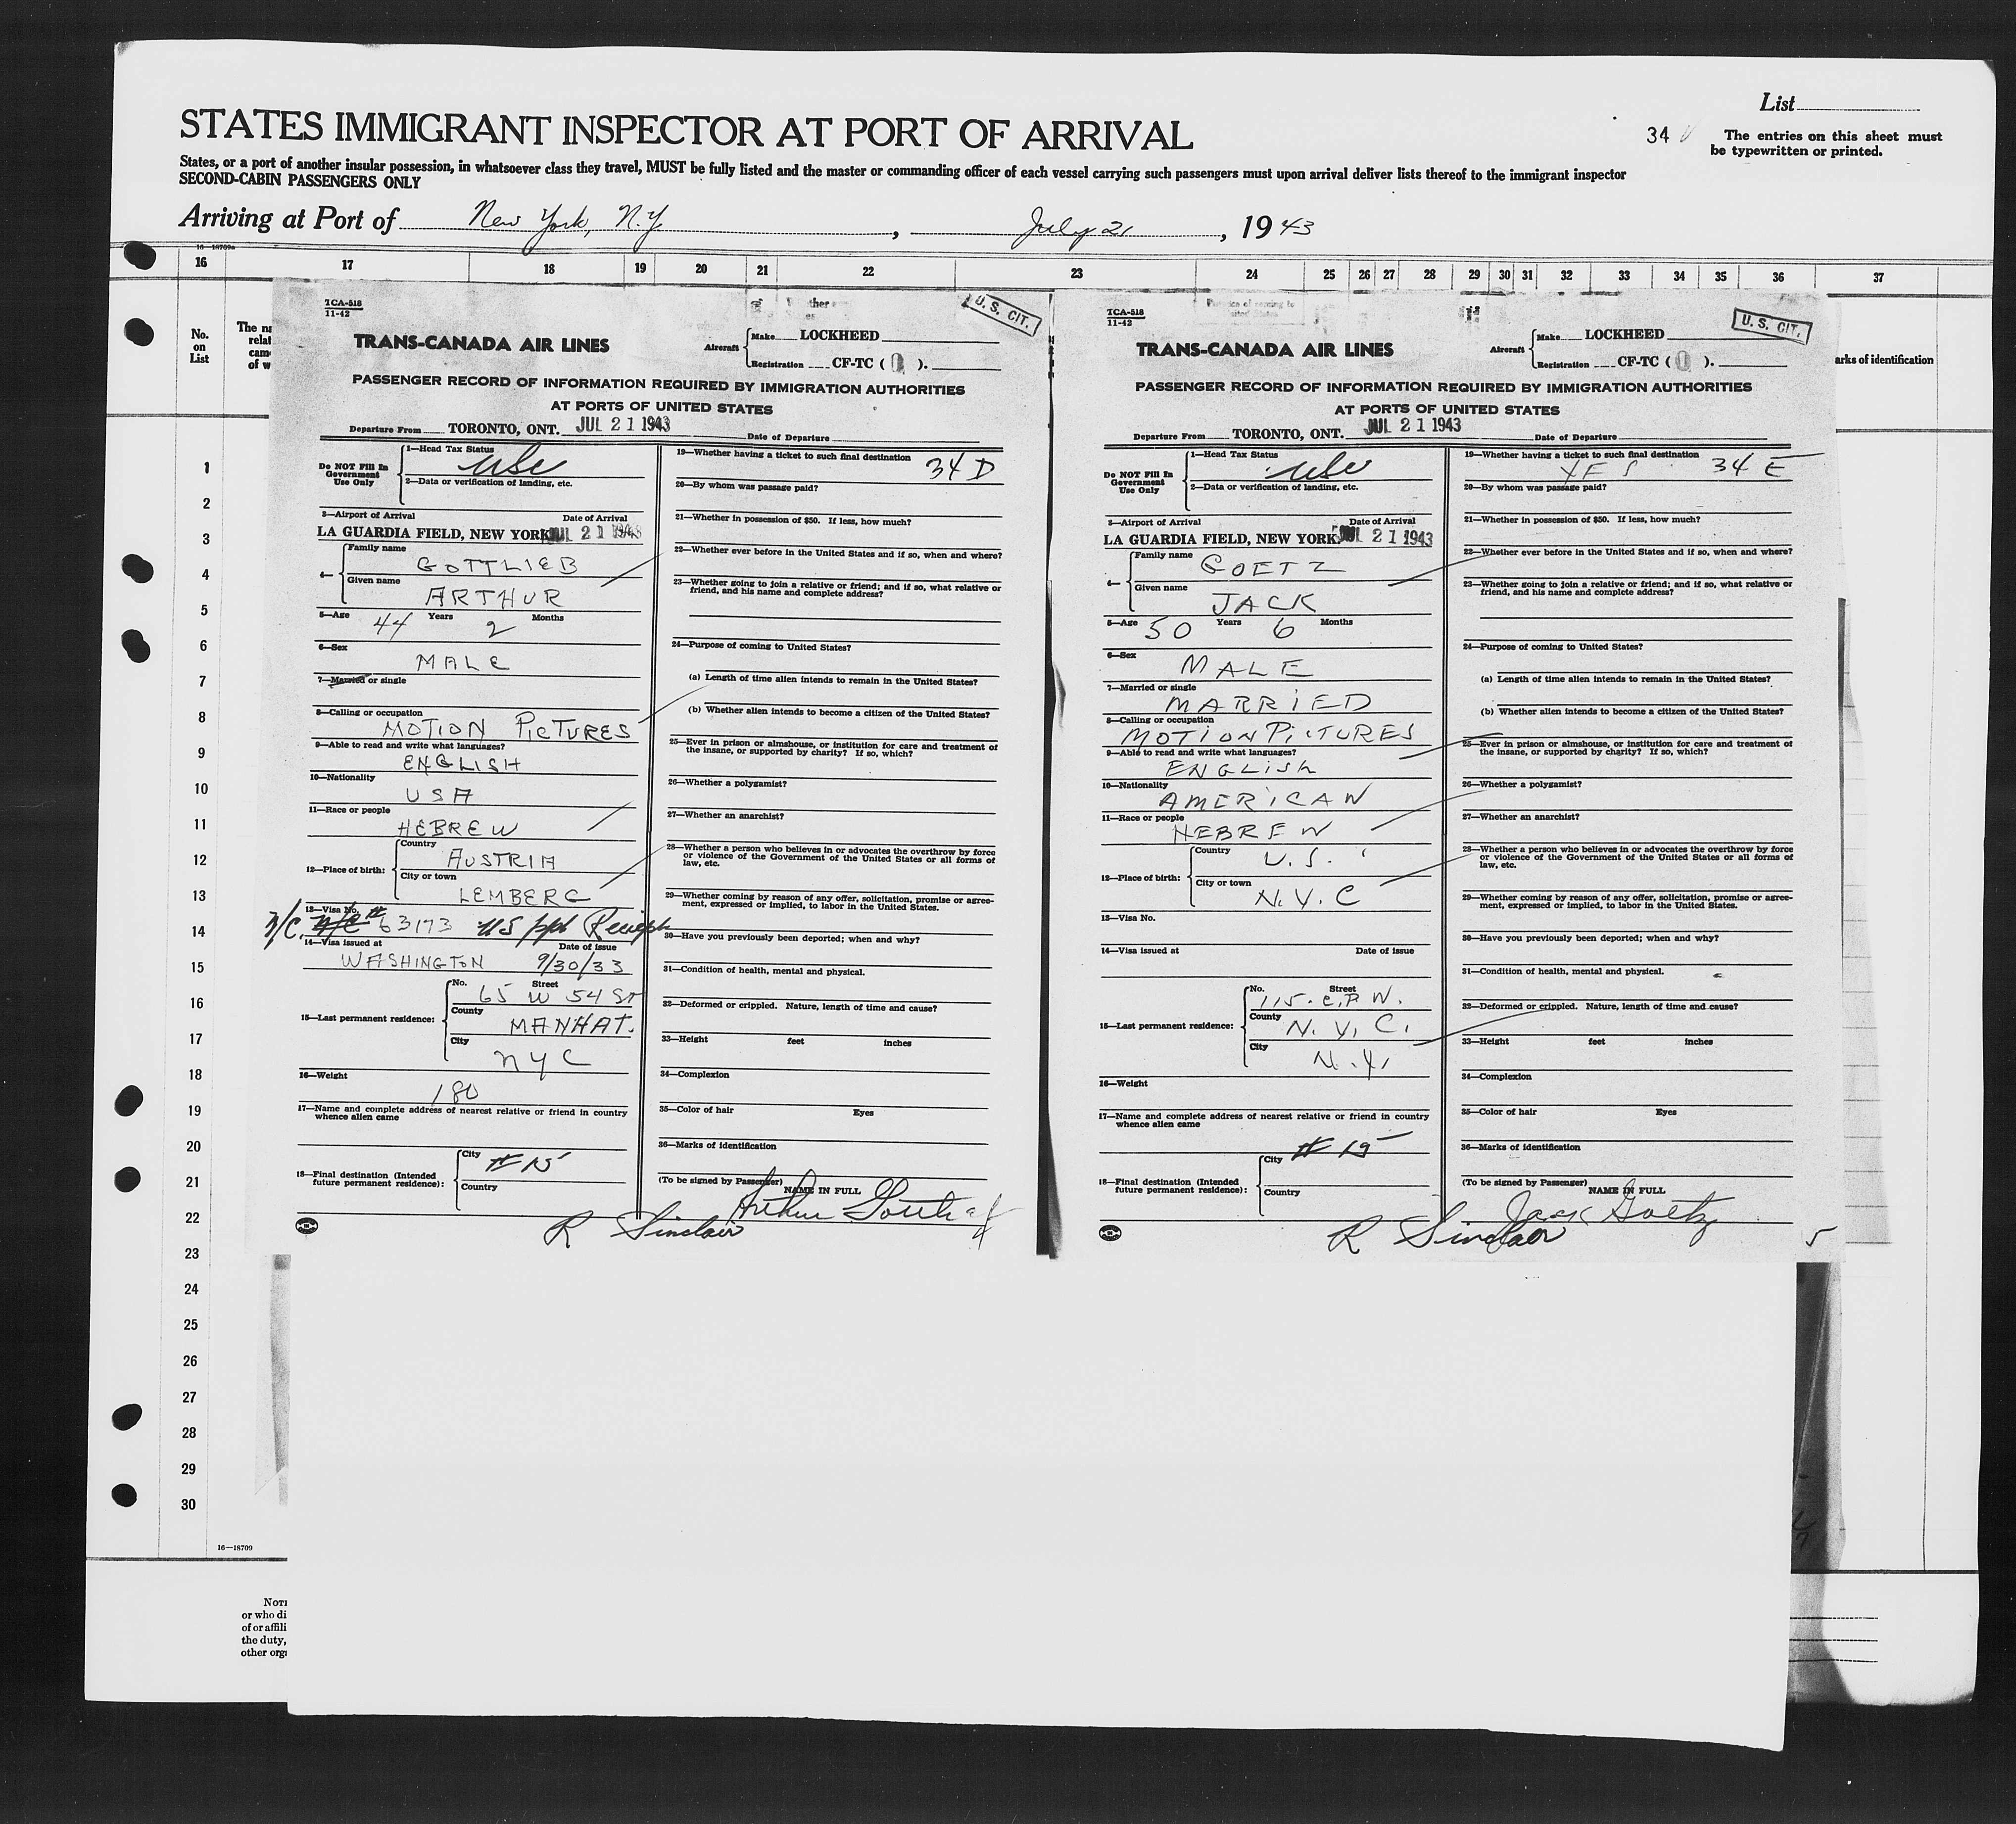 List
STATES IMMIGRANT INSPECTOR AT PORT OF ARRIVAL
34
The entries on this sheet must
be typewritten or printed.
States, or a port of another insular possession, in whatsoever class they travel, MUST be fully listed and the master or commanding officer of each vessel carrying such passengers must upon arrival deliver lists thereof to the immigrant inspector
SECOND-CABIN PASSENGERS ONLY
Arriving at Port of New York, N.Y. , July 21 , 1943
16—18709a
16 17 18 19 20 21 22 23 24 25 26 27 28 29 30 31 32 33 34 35 36 37
No.
on
List
The na
relat
cam
of w
arks of identification
1
2
3
4
5
6
7
8
9
10
11
12
13
14
15
16
17
18
19
20
21
22
23
24
25
26
27
28
29
30
16—18709
NOTE
or who di
of or affili
the duty,
other orga
TCA-518
11-42
U. S. CIT.
TRANS-CANADA AIR LINES
Aircraft
Make LOCKHEED
Registration CF-TC ( ).
PASSENGER RECORD OF INFORMATION REQUIRED BY IMMIGRATION AUTHORITIES
AT PORTS OF UNITED STATES
Departure From TORONTO, ONT. JUL 21 1943 Date of Departure
Do NOT Fill In
Government
Use Only
1—Head Tax Status
USC
2—Data or verification of landing, etc.
3—Airport of Arrival Date of Arrival
LA GUARDIA FIELD, NEW YORK JUL 21 1943
4—
Family name
GOTTLIEB
Given name
ARTHUR
5—Age 44 Years 2 Months
6—Sex
MALE
7—Married or single
8—Calling or occupation
MOTION PICTURES
9—Able to read and write what languages?
ENGLISH
10—Nationality
USA
11—Race or people
HEBREW
12—Place of birth:
Country
AUSTRIA
City or town
LEMBERG
13—Visa No.
N/C. # 63173 US ppt
14—Visa issued at Date of issue
WASHINGTON 9/30/33
15—Last permanent residence:
No. Street
65 W 54 ST
County
MANHAT.
City
NYC
16—Weight
180
17—Name and complete address of nearest relative or friend in country
whence alien came
18—Final destination (Intended
future permanent residence):
City
# 15
Country
19—Whether having a ticket to such final destination
34 D
20—By whom was passage paid?
21—Whether in possession of $50. If less, how much?
22—Whether ever before in the United States and if so, when and where?
23—Whether going to join a relative or friend; and if so, what relative or
friend, and his name and complete address?
24—Purpose of coming to United States?
(a) Length of time alien intends to remain in the United States?
(b) Whether alien intends to become a citizen of the United States?
25—Ever in prison or almshouse, or institution for care and treatment of
the insane, or supported by charity? If so, which?
26—Whether a polygamist?
27—Whether an anarchist?
28—Whether a person who believes in or advocates the overthrow by force
or violence of the Government of the United States or all forms of
law, etc.
29—Whether coming by reason of any offer, solicitation, promise or agree-
ment, expressed or implied, to labor in the United States.
30—Have you previously been deported; when and why?
31—Condition of health, mental and physical.
32—Deformed or crippled. Nature, length of time and cause?
33—Height feet inches
34—Complexion
35—Color of hair Eyes
36—Marks of identification
(To be signed by Passenger)
NAME IN FULL
Arthur Gottlieb
R Sinclair
4
TCA-518
11-42
U. S. CIT.
TRANS-CANADA AIR LINES
Aircraft
Make LOCKHEED
Registration CF-TC ( ).
PASSENGER RECORD OF INFORMATION REQUIRED BY IMMIGRATION AUTHORITIES
AT PORTS OF UNITED STATES
Departure From TORONTO, ONT. JUL 21 1943 Date of Departure
Do NOT Fill In
Government
Use Only
1—Head Tax Status
USC
2—Data or verification of landing, etc.
3—Airport of Arrival Date of Arrival
LA GUARDIA FIELD, NEW YORK JUL 21 1943
4—
Family name
GOETZ
Given name
JACK
5—Age 50 Years 6 Months
6—Sex
MALE
7—Married or single
MARRIED
8—Calling or occupation
MOTION PICTURES
9—Able to read and write what languages?
ENGLISH
10—Nationality
AMERICAN
11—Race or people
HEBREW
12—Place of birth:
Country
U.S.
City or town
N.Y.C
13—Visa No.
14—Visa issued at Date of issue
15—Last permanent residence:
No. Street
115. C.P.W.
County
N.Y.C.
City
N.Y.
16—Weight
17—Name and complete address of nearest relative or friend in country
whence alien came
18—Final destination (Intended
future permanent residence):
City
# 15
Country
19—Whether having a ticket to such final destination
YES 34 E
20—By whom was passage paid?
21—Whether in possession of $50. If less, how much?
22—Whether ever before in the United States and if so, when and where?
23—Whether going to join a relative or friend; and if so, what relative or
friend, and his name and complete address?
24—Purpose of coming to United States?
(a) Length of time alien intends to remain in the United States?
(b) Whether alien intends to become a citizen of the United States?
25—Ever in prison or almshouse, or institution for care and treatment of
the insane, or supported by charity? If so, which?
26—Whether a polygamist?
27—Whether an anarchist?
28—Whether a person who believes in or advocates the overthrow by force
or violence of the Government of the United States or all forms of
law, etc.
29—Whether coming by reason of any offer, solicitation, promise or agree-
ment, expressed or implied, to labor in the United States.
30—Have you previously been deported; when and why?
31—Condition of health, mental and physical.
32—Deformed or crippled. Nature, length of time and cause?
33—Height feet inches
34—Complexion
35—Color of hair Eyes
36—Marks of identification
(To be signed by Passenger)
NAME IN FULL
Jack Goetz
R Sinclair
5